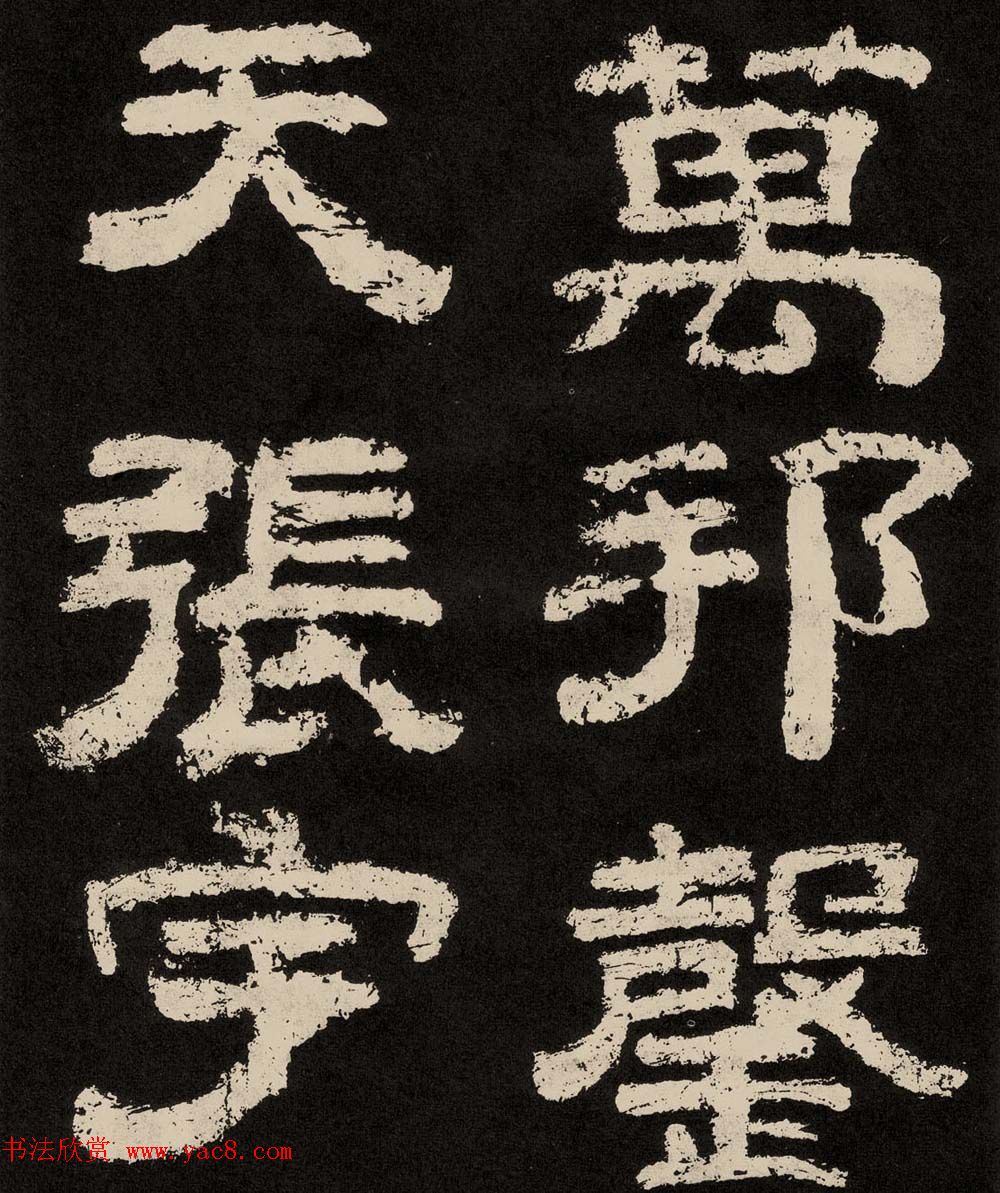 萬邦罄
天張宇
书法欣赏 www.yac8.com